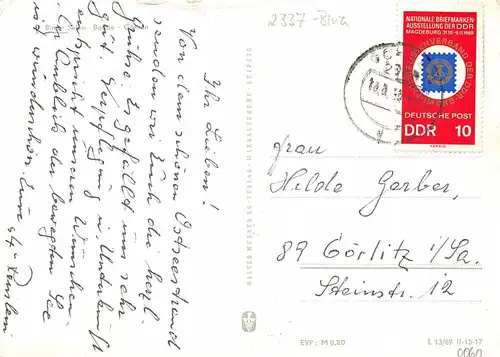 2337-Binz
NATIONALE BRIEFMARKEN
AUSSTELLUNG DER DDR
MAGDEBURG 31.10.-9.11.1969
DEUTSCHE POST
DDR 10
Ihr Lieben!
Von dem schönen Ostseestrand
senden wir Euch die herzl.
Grüße. Es gefällt uns sehr
gut. Verpflegung u. Unterkunft
entspricht unseren Wünschen.
Der Anblick der bewegten See
ist wunderschön. Eure
Frau
Hilde Gerber,
89 Görlitz i/Sa.
Steinstr. 12
EVP: M 0,20
L 13/69 II-15-17